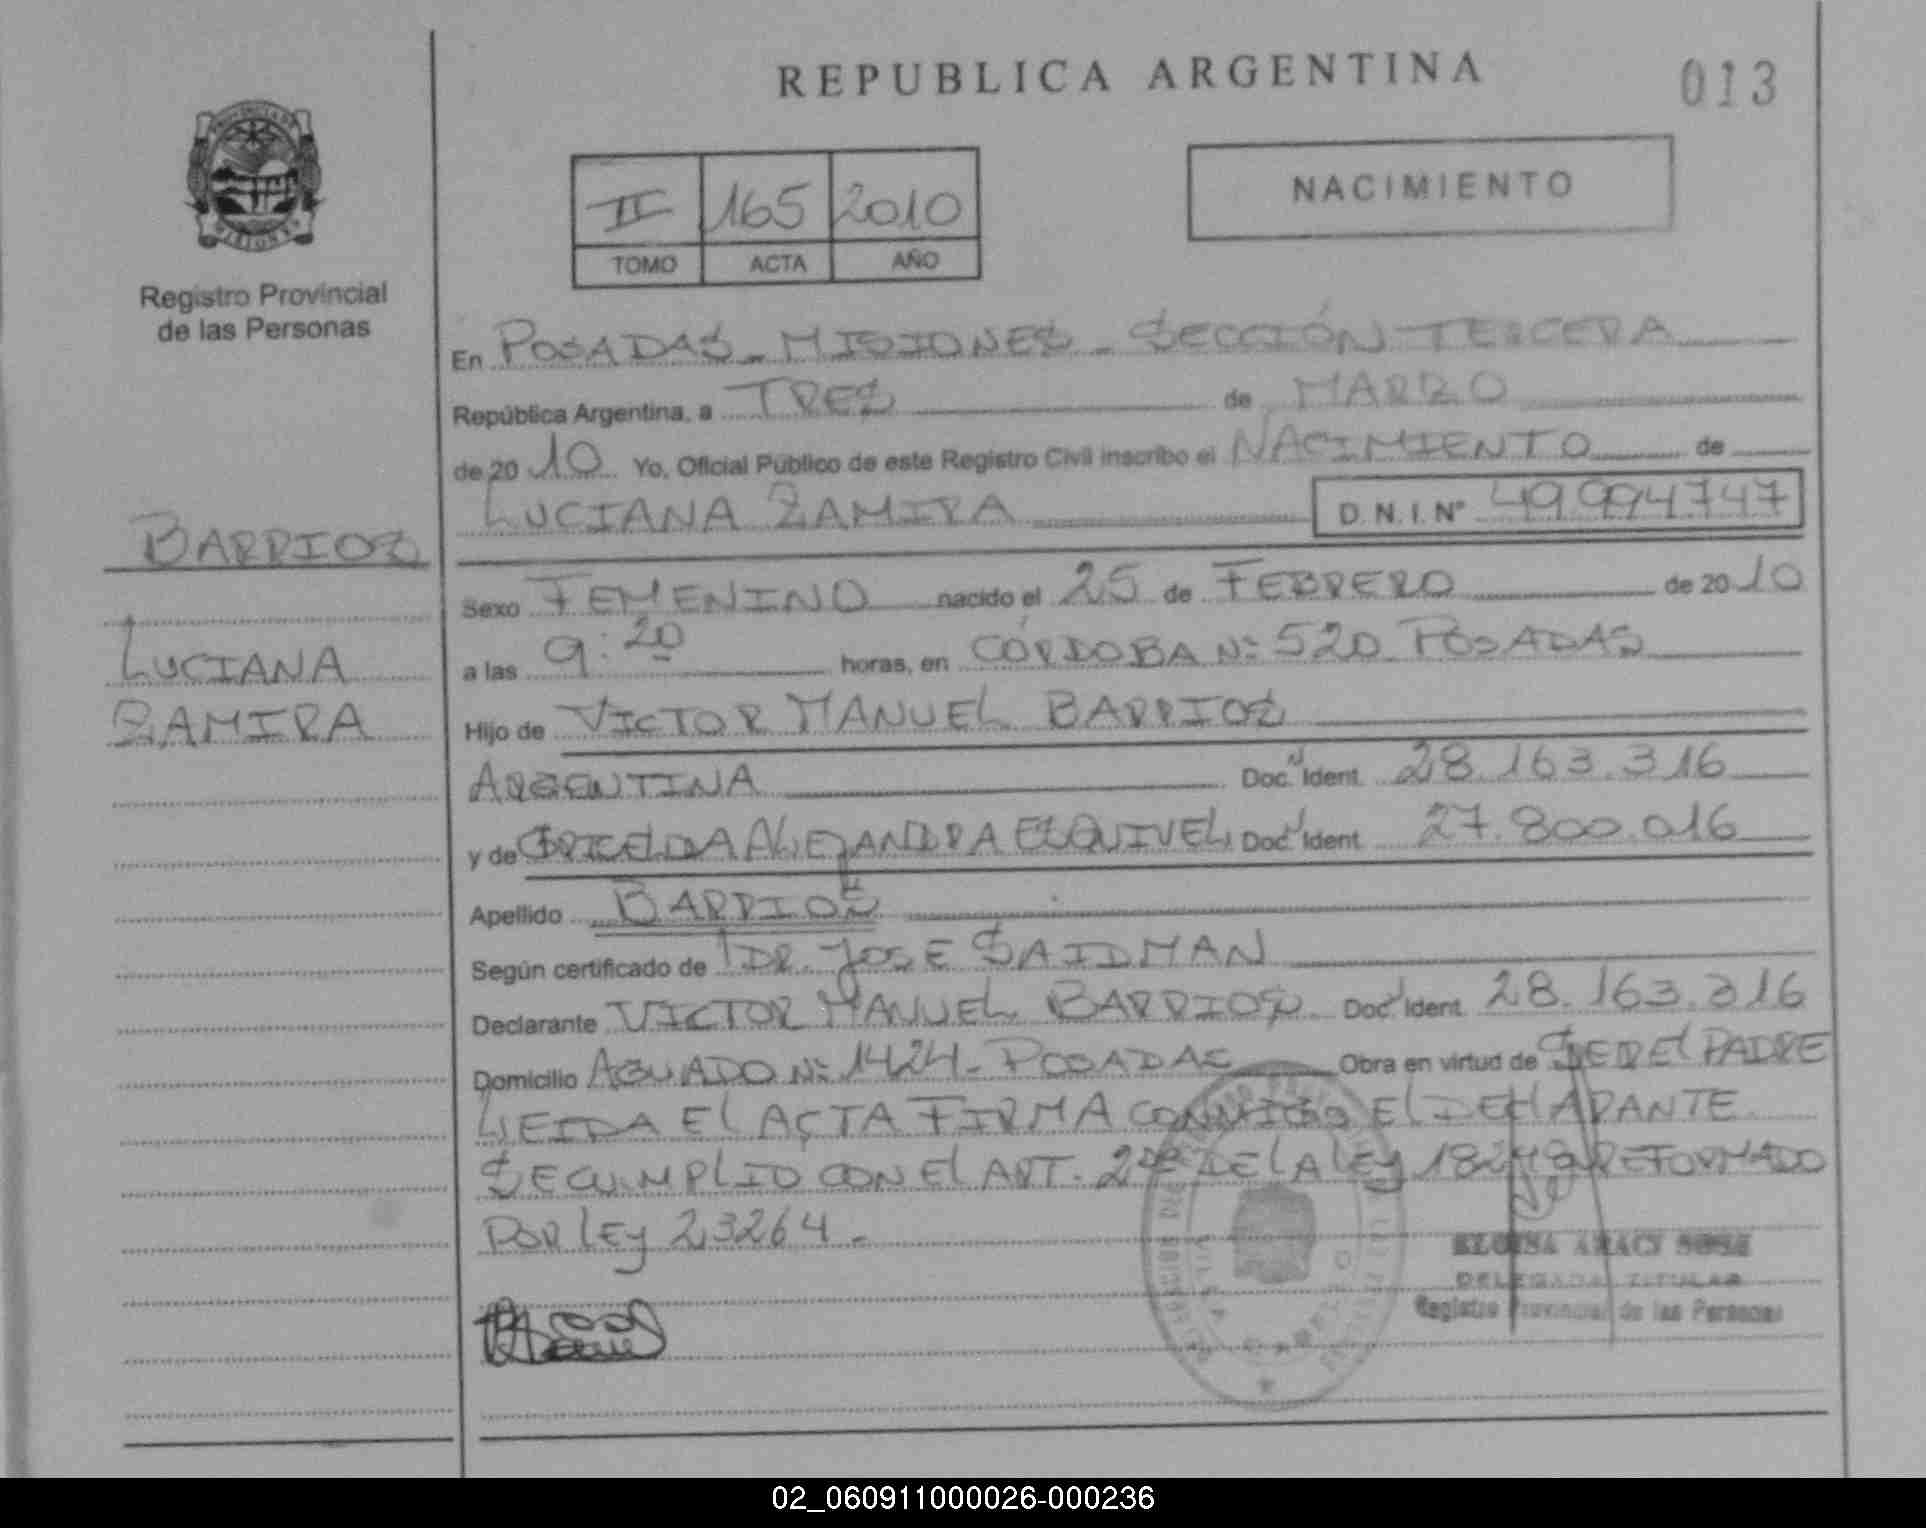 REPUBLICA ARGENTINA
013
Registro Provincial
de las Personas
II 165 2010
TOMO ACTA AÑO
NACIMIENTO
En POSADAS - MISIONES - SECCIÓN TERCERA
República Argentina, a TRES de MARZO
de 20 10 Yo, Oficial Público de este Registro Civil inscribo el NACIMIENTO de
LUCIANA ZAMIRA D.N.I.Nº 49994747
BARRIOS
LUCIANA
ZAMIRA
Sexo FEMENINO nacido el 25 de FEBRERO de 20 10
a las 9:20 horas, en CÓRDOBA Nº 520 POSADAS
Hijo de VICTOR MANUEL BARRIOS
ARGENTINA Doc. Ident. 28.163.316
y de GRICELDA ALEJANDRA ESQUIVEL Doc. Ident. 27.800.016
Apellido BARRIOS
Según certificado de DR. JOSE SAIDMAN
Declarante VICTOR MANUEL BARRIOS Doc. Ident. 28.163.316
Domicilio AGUADO Nº 1424 - POSADAS Obra en virtud de SER EL PADRE
LEIDA El ACTA FIRMA CONMIGO El DECLARANTE
SE CUMPLIO CON El ART. 2do DE LA LEY 18248 REFORMADO
POR LEY 23264.-
ELOISA ARACI SOSA
DELEGADA TITULAR
Registro Provincial de las Personas
02_060911000026-000236